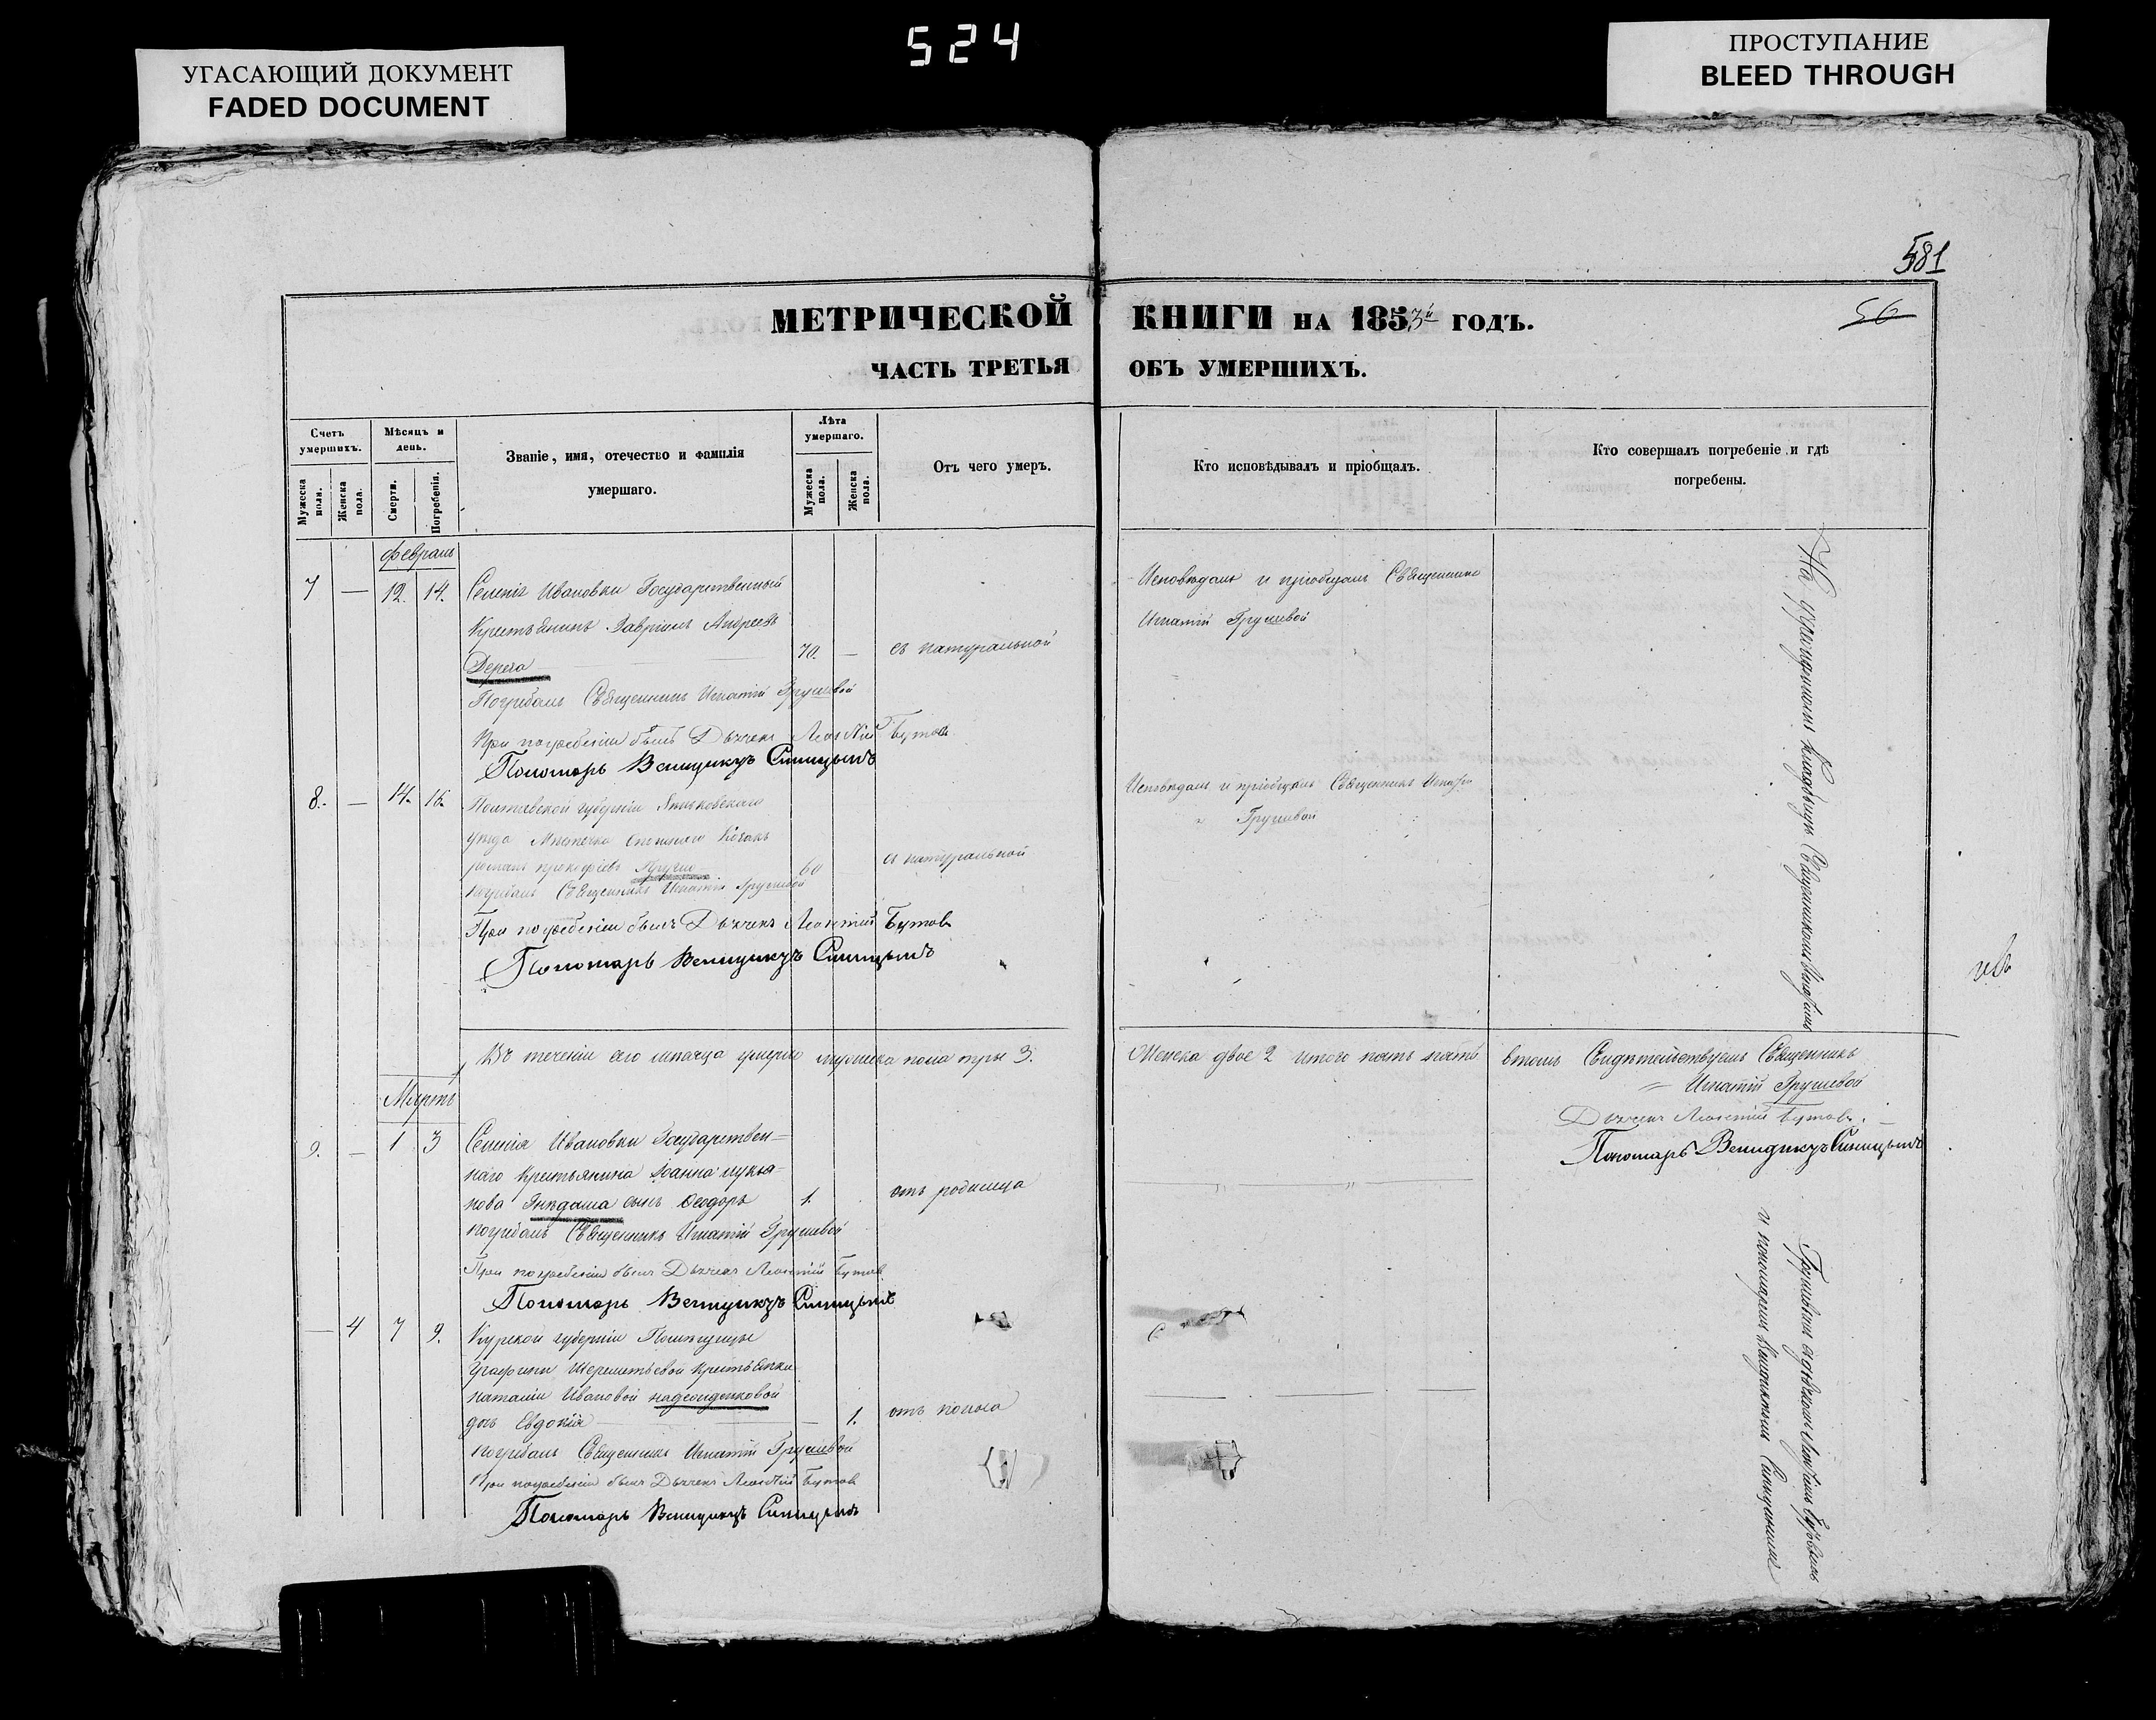 524
УГАСАЮЩИЙ ДОКУМЕНТ
FADED DOCUMENT
ПРОСТУПАНИЕ
BLEED THROUGH
581
56
МЕТРИЧЕСКОЙ КНИГИ НА 1853й ГОДЪ.
ЧАСТЬ ТРЕТЬЯ ОБЪ УМЕРШИХЪ.
Счетъ умершихъ.
Мужеска пола.
Женска пола.
Мѣсяцъ и день.
Смерти.
Погребенія.
Званіе, имя, отечество и фамилія
умершаго.
Лѣта умершаго.
Мужеска пола.
Женска пола.
Отъ чего умеръ.
Кто исповѣдывалъ и пріобщалъ.
Кто совершалъ погребеніе и гдѣ
погребены.
Февраль
7 — 12. 14. Селенія Ивановки Государственный
Крестьянинъ Гавріилъ Андреевъ
Дерега 70. — съ натуральной
Погребалъ Священникъ Игнатій Грушевой
При погребеніи былъ Дьячекъ Леонтій Бутов
Пономарь Венидиктъ Синицынъ
Исповѣдалъ и пріобщалъ Священникъ
Игнатій Грушевой
8. — 14. 16. Полтавской губерніи
уѣзда Мѣстечка Козакъ
романъ прокофіевъ 60 съ натуральной
погребалъ Священникъ Игнатій Грушевой
При погребеніи былъ Дьячекъ Леонтій Бутов
Пономарь Венидиктъ Синицынъ
Исповѣдалъ и пріобщалъ Священникъ Игнатій
Грушевой
Въ теченіи сего мѣсяца умерло мужеска пола три 3. Женска двое 2 итого пять
въ томъ Свидѣтельствуемъ Священникъ
Игнатій Грушевой
Дьячекъ Леонтій Бутовъ.
Пономарь Венидиктъ Синицынъ
Мартъ
9. — 1 3 Селенія Ивановки Государствен=
наго крестьянина Іоанна лукья-
нова Гнѣдаша сынъ Феодоръ 1. отъ родимца
погребалъ Священникъ Игнатій Грушевой
При погребеніи былъ Дьячекъ Леонтій Бутов
Пономарь Венидиктъ Синицынъ
— 4 7 9. Курской губерніи Помѣщицы
Графини Шереметьевой крестьянки
наталіи Ивановой
дочь Евдокія — 1. отъ поноса
погребалъ Священникъ Игнатій Грушевой
При погребеніи былъ Дьячекъ Леонтій Бутов
Пономарь Венидиктъ Синицынъ
На приходскомъ кладбищѣ Священникомъ Игнатіемъ
Грушевымъ Леонтіемъ Бутовымъ
и пономаремъ Венидиктомъ Синицинымъ